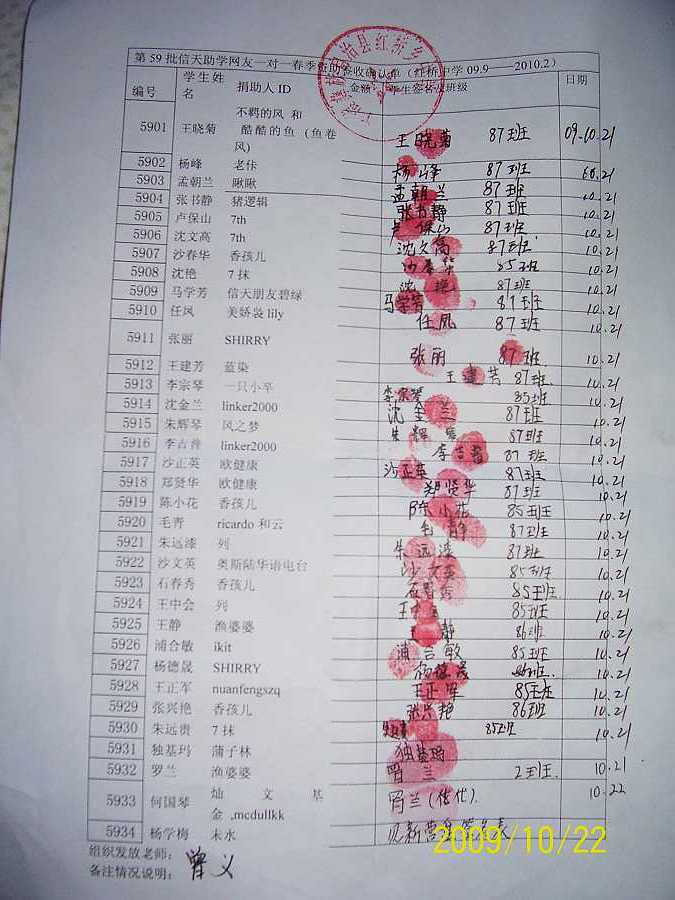 第 59 批信天助学网友一对一春季资助签收确认单（红桥中学 09.9——2010.2）
编号 学生姓名 捐助人 ID 金额 学生签名及班级 日期
5901 王晓菊 不羁的风 和 酷酷的鱼（鱼卷风） 王晓菊 87班 09.10.21
5902 杨峰 老佧 杨峰 87班 10.21
5903 孟朝兰 瞅瞅 孟朝兰 87班 10.21
5904 张书静 猪逻辑 张书静 87班 10.21
5905 卢保山 7th 卢保山 87班 10.21
5906 沈文高 7th 沈文高 87班 10.21
5907 沙春华 香孩儿 沙春华 85班 10.21
5908 沈艳 7 抹 沈艳 87班 10.21
5909 马学芳 信天朋友碧绿 马学芳 87班 10.21
5910 任凤 美娇袅 lily 任凤 87班 10.21
5911 张丽 SHIRRY 张丽 87班 10.21
5912 王建芳 蓝染 王建芳 87班 10.21
5913 李宗琴 一只小卒 李宗琴 85班 10.21
5914 沈金兰 linker2000 沈金兰 87班 10.21
5915 朱辉琴 风之梦 朱辉琴 87班 10.21
5916 李吉 linker2000 李吉 87班 10.21
5917 沙正英 欧健康 沙正英 87班 10.21
5918 郑贤华 欧健康 郑贤华 87班 10.21
5919 陈小花 香孩儿 陈小花 85班 10.21
5920 毛青 ricardo 和云 毛静 87班 10.21
5921 朱远漆 列 朱远漆 87班 10.21
5922 沙文英 奥斯陆华语电台 沙文英 85班 10.21
5923 石春秀 香孩儿 石春秀 85班 10.21
5924 王中会 列 王中会 85班 10.21
5925 王静 渔婆婆 王静 86班 10.21
5926 浦合敏 ikit 浦合敏 85班 10.21
5927 杨德晟 SHIRRY 杨德晟 班 10.21
5928 王正军 nuanfengszq 王正军 85班 10.21
5929 张兴艳 香孩儿 张兴艳 86班 10.21
5930 朱远贵 7 抹 85班 10.21
5931 独基玛 蒲子林 独基玛
5932 罗兰 渔婆婆 罗兰 2班 10.21
5933 何国琴 灿文基金 ,mcdullkk 罗兰(代) 10.22
5934 杨学梅 未水
组织发放老师： 曾义
备注情况说明：
2009/10/22